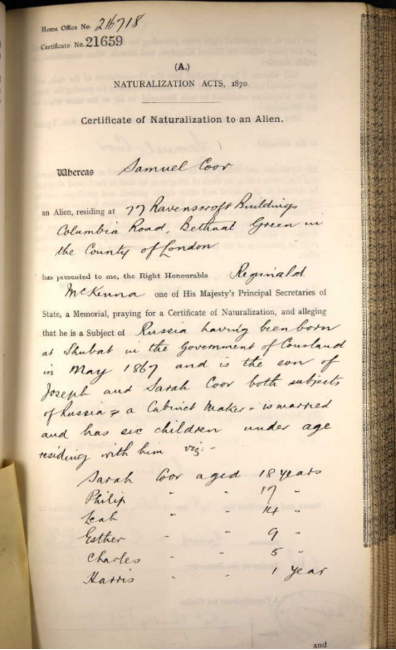 Home Office No. 216718
Certificate No. 21659
(A.)
NATURALIZATION ACTS, 1870
Certificate of Naturalization to an Alien.
Whereas Samuel Coor
an Alien, residing at 77 Ravenscroft Buildings
Columbia Road, Bethnal Green in
the County of London
has presented to me, the Right Honourable Reginald
McKenna one of His Majesty's Principal Secretaries of
State, a Memorial, praying for a Certificate of Naturalization, and alleging
that he is a Subject of Russia having been born
at Shubat in the Government of Courland
in May 1867 and is the son of
Joseph and Sarah Coor both subjects
of Russia & a Cabinet Maker - is married
and has six children under age
residing with him viz:-
Sarah Coor aged 18 years
Philip " " 17 "
Leah " " 14 "
Esther " " 9 "
Charles " " 5 "
Harris " " 1 year
and